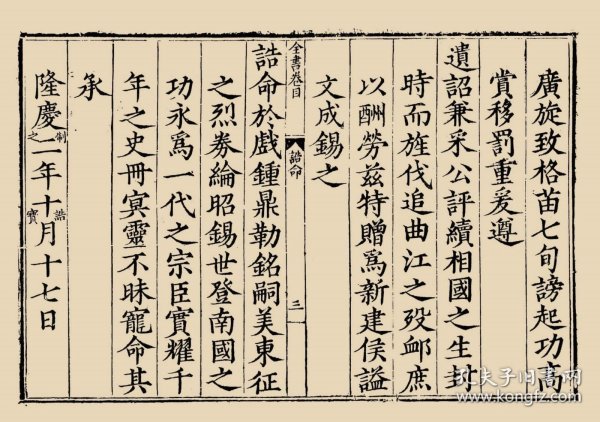 廣旋致格苗七旬謗起功高
賞移罰重爰遵
遺詔兼采公評續相國之生封
時而旌伐追曲江之歿卹庶
以酬勞茲特贈爲新建侯謚
文成錫之
全書卷首
誥命
三
誥命於戲鍾鼎勒銘嗣美東征
之烈券綸昭錫世登南國之
功永爲一代之宗臣實耀千
年之史冊冥靈不昧寵命其
承
隆慶二年十月十七日
制
之
誥
寶
孔夫子旧书网
www.kongfz.com